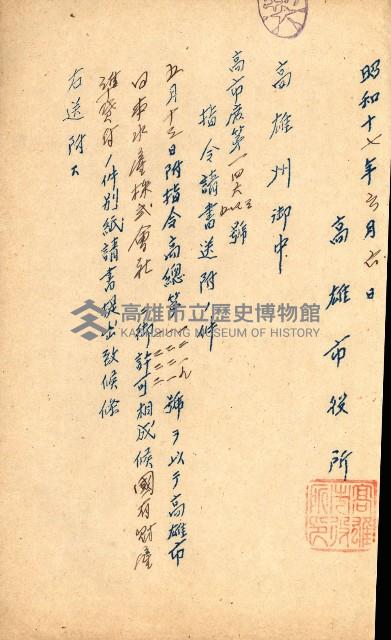 昭和十七年六月六日
高雄市役所
高雄州御中
高市庶第一四六號
指令請書送附ノ件
五月十三日附指令高總第號ヲ以テ高雄市
日東水產株式會社ニ御許可相成候國有財產
ノ件別紙請書提出致候條
右送附ス
高雄市立歷史博物館
KAOHSIUNG MUSEUM OF HISTORY
高雄市役所印